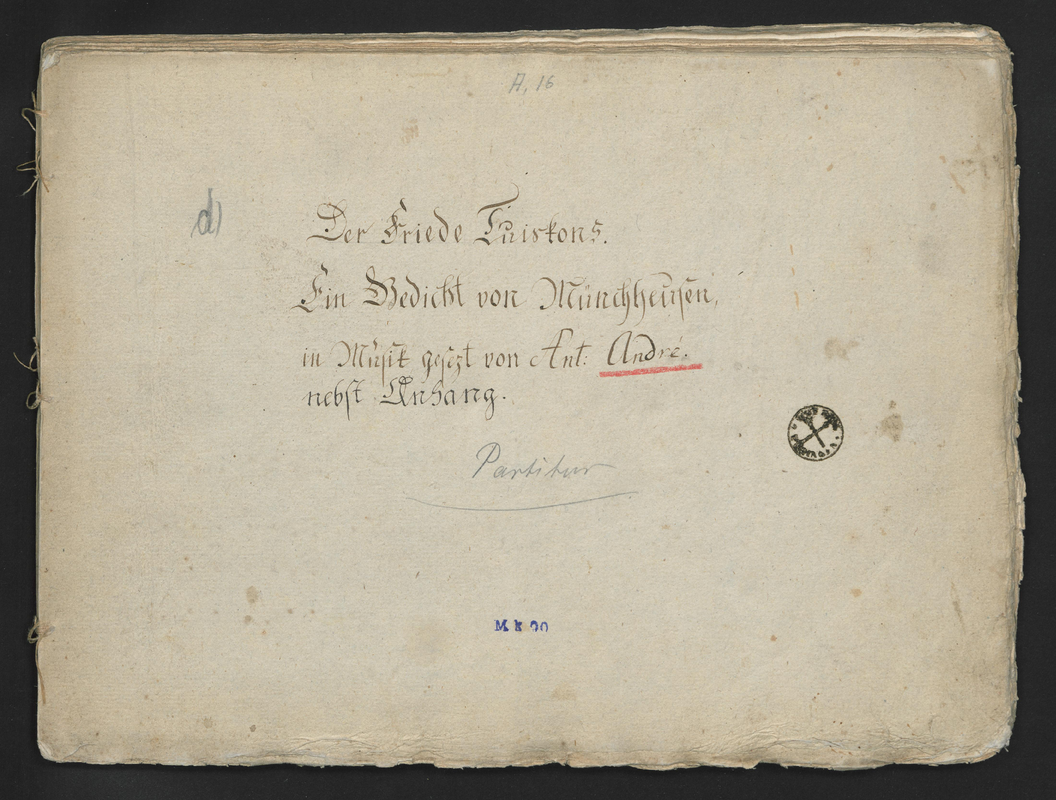 A, 16
d)
Der Friede Tuiskons.
Ein Gedicht von Münchhausen,
in Musik gesezt von Ant: André.
nebst Anhang.
Partitur